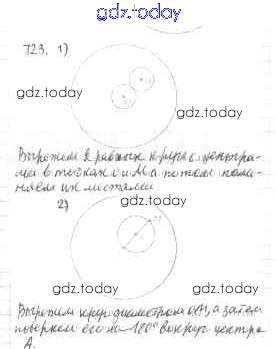 gdz.today
723. 1)
gdz.today
gdz.today
Вырежем 2 равных круга с центра-
ми в точках O и M а потом поме-
няем их местами.
gdz.today
2)
gdz.today
gdz.today
Вырежем круг диаметром OM, а затем
повернем его на 180° вокруг центра
A.